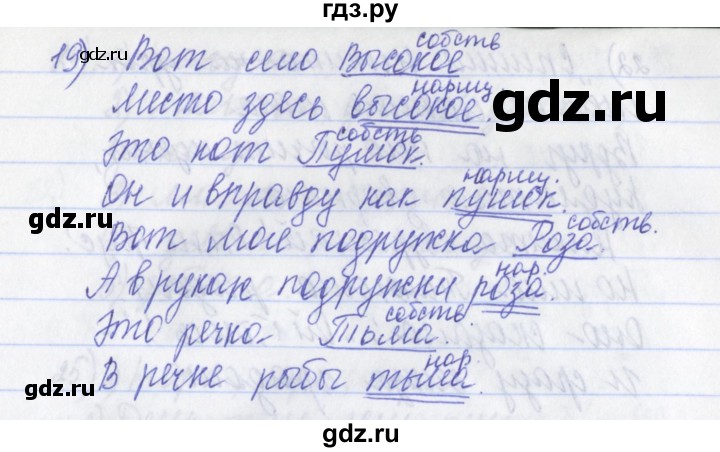 гдз.ру
19) Вот село Высокое собств
Место здесь высокое. нариц
Это кот Пушок. собств
Он и вправду как пушок. нариц.
Вот моя подружка Роза. собств.
А в руках подружки роза. нар.
Это речка Тьма. собств
В речке рыбы тьма. нар.
gdz.ru
gdz.ru
gdz.ru
gdz.ru
gdz.ru
gdz.ru
gdz.ru
gdz.ru
gdz.ru